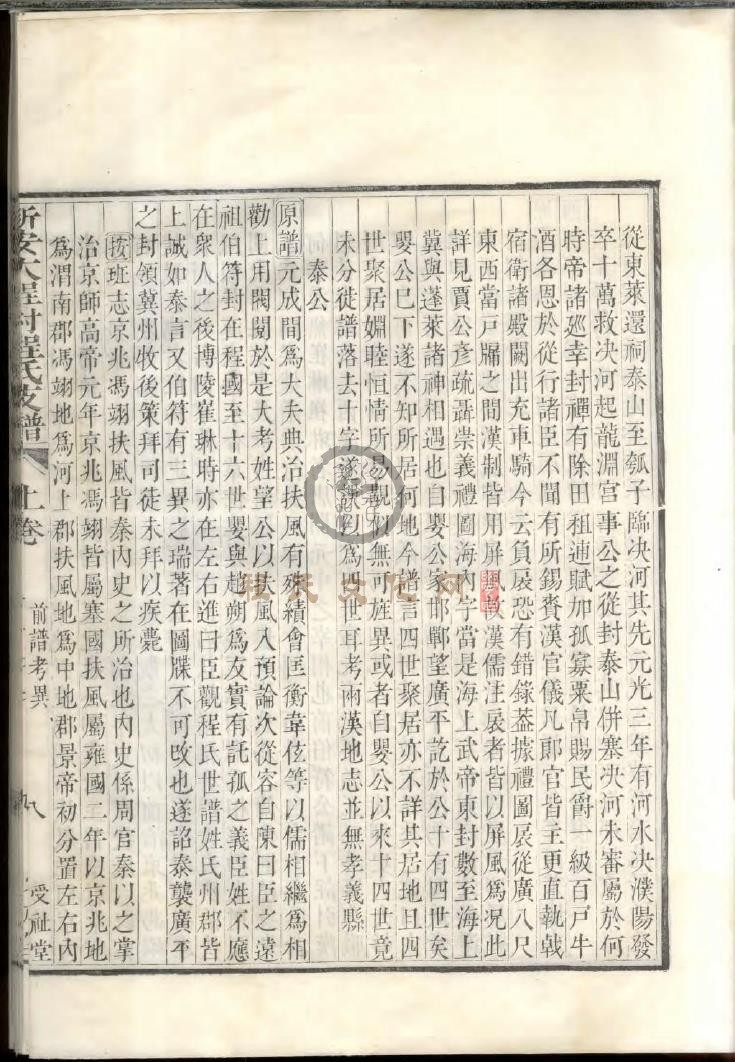 從東萊還祠泰山至瓠子臨决河其先元光三年有河水决濮陽發
卒十萬救决河起龍淵宫事公之從封泰山併塞决河未審屬於何
時帝諸廵幸封禪有除田租逋賦加孤寡粟帛賜民爵一級百戸牛
酒各恩於從行諸臣不聞有所錫賚漢官儀凡郎官皆主更直執戟
宿衛諸殿闕出充車騎今云負扆恐有錯錄葢據禮圖扆從廣八尺
東西當戸牖之間漢制皆用屏風故漢儒注扆者皆以屏風爲况此
詳見賈公彥疏聶崇義禮圖海内字當是海上武帝東封數至海上
冀與蓬萊諸神相遇也自嬰公家邯鄲望廣平訖於公十有四世矣
嬰公巳下遂不知所居何地今譜言四世聚居亦不詳其居地且四
世聚居婣睦恒情所易觀初無可旌異或者自嬰公以來十四世竟
未分徙譜落去十字遂誤以爲四世耳考兩漢地志並無孝義縣
泰公
原譜元成間爲大夫典治扶風有殊績會匡衡韋伭等以儒相繼爲相
勸上用閥閱於是大考姓望公以扶風入預論次從容自陳曰臣之遠
祖伯符封在程國至十六世嬰與趙朔爲友實有託孤之義臣姓不應
在衆人之後博陵崔琳時亦在左右進曰臣觀程氏世譜姓氏州郡皆
上誠如泰言又伯符有三異之瑞著在圖牒不可攺也遂詔泰襲廣平
之封領冀州牧後策拜司徒未拜以疾薨
按班志京兆馮翊扶風皆秦内史之所治也内史係周官秦以之掌
治京師高帝元年京兆馮翊皆屬塞國扶風屬雍國二年以京兆地
爲渭南郡馮翊地爲河上郡扶風地爲中地郡景帝初分置左右内
新安大程村程氏支譜 上卷 前譜考異 受祉堂